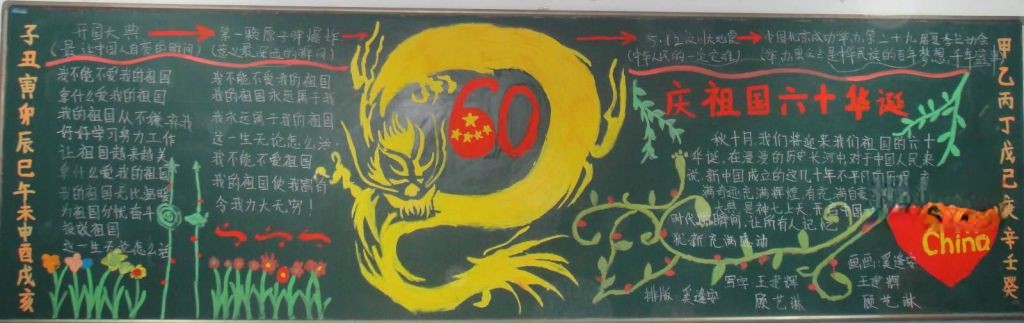 子丑寅卯辰巳午未申酉戌亥
开国大典
第一颗原子弹爆炸
(最让中国人自豪的瞬间)
我不能不爱我的祖国
拿什么爱我的祖国
我的祖国从不嫌弃我
好好学习努力工作
让祖国越来越美
拿什么爱我的祖国
我的祖国无比温暖
为祖国分忧奋斗
报效祖国
这一生无论怎么活
我不能不爱祖国
我的祖国永远属于我
我永远属于我的祖国
这一生无论怎么活
我不能不爱祖国
我的祖国使我拥有
令我力大无穷!
60
5.12汶川大地震
中国北京成功举办第二十九届夏季奥运会
庆祖国六十华诞
秋十月,我们将迎来我们祖国的六十
华诞,在漫漫的历史长河中对于中国人民来
说,新中国成立的这几十年不平凡的历程,充
满奇迹充满辉煌,有充满自豪
时代的瞬间,让所有人记忆
犹新充满感动
排版 奚逢安
写字 王楚辉
顾艺琳
画画:奚逢安
王楚辉
顾艺琳
China
甲乙丙丁戊己庚辛壬癸